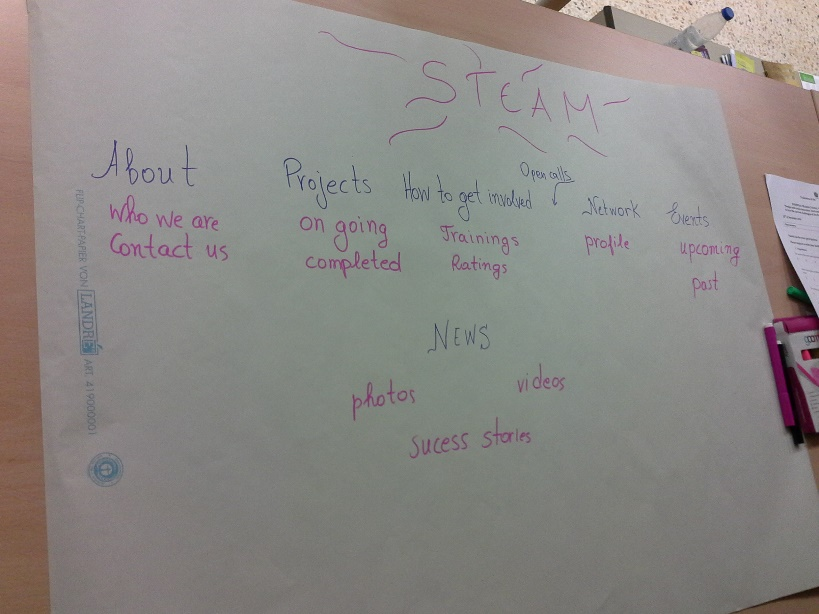 STEAM
About
Who we are
Contact us
Projects
on going
completed
How to get involved
Trainings
Ratings
Open calls
Network
profile
Events
upcoming
past
NEWS
photos
videos
sucess stories
FLIPCHARTPAPIER VON LANDRÉ ART. 419000001